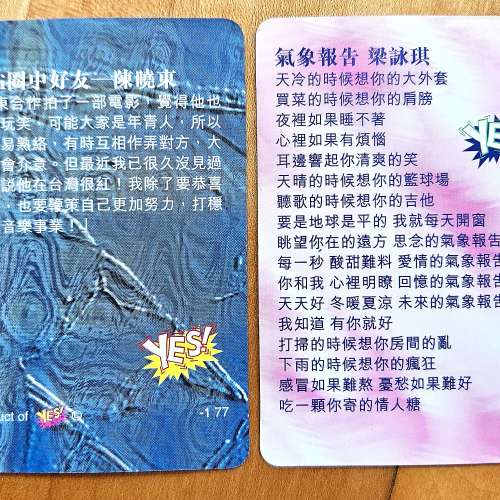 圈中好友—陳曉東
東合作拍了一部電影，覺得他也
玩笑，可能大家是年青人，所以
易熟絡，有時互相作弄對方，大
會介意。但最近我已很久沒見過
説他在台灣很紅！我除了要恭喜
，也要鞭策自己更加努力，打穩
音樂事業！」
YES!
uct of YES! ©
-177
氣象報告 梁詠琪
天冷的時候想你的大外套
買菜的時候想你的肩膀
夜裡如果睡不著
心裡如果有煩惱
耳邊響起你清爽的笑
天晴的時候想你的籃球場
聽歌的時候想你的吉他
要是地球是平的 我就每天開窗
眺望你在的遠方 思念的氣象報告
每一秒 酸甜難料 愛情的氣象報告
你和我 心裡明瞭 回憶的氣象報告
天天好 冬暖夏涼 未來的氣象報告
我知道 有你就好
打掃的時候想你房間的亂
下雨的時候想你的瘋狂
感冒如果難熬 憂愁如果難好
吃一顆你寄的情人糖
YE